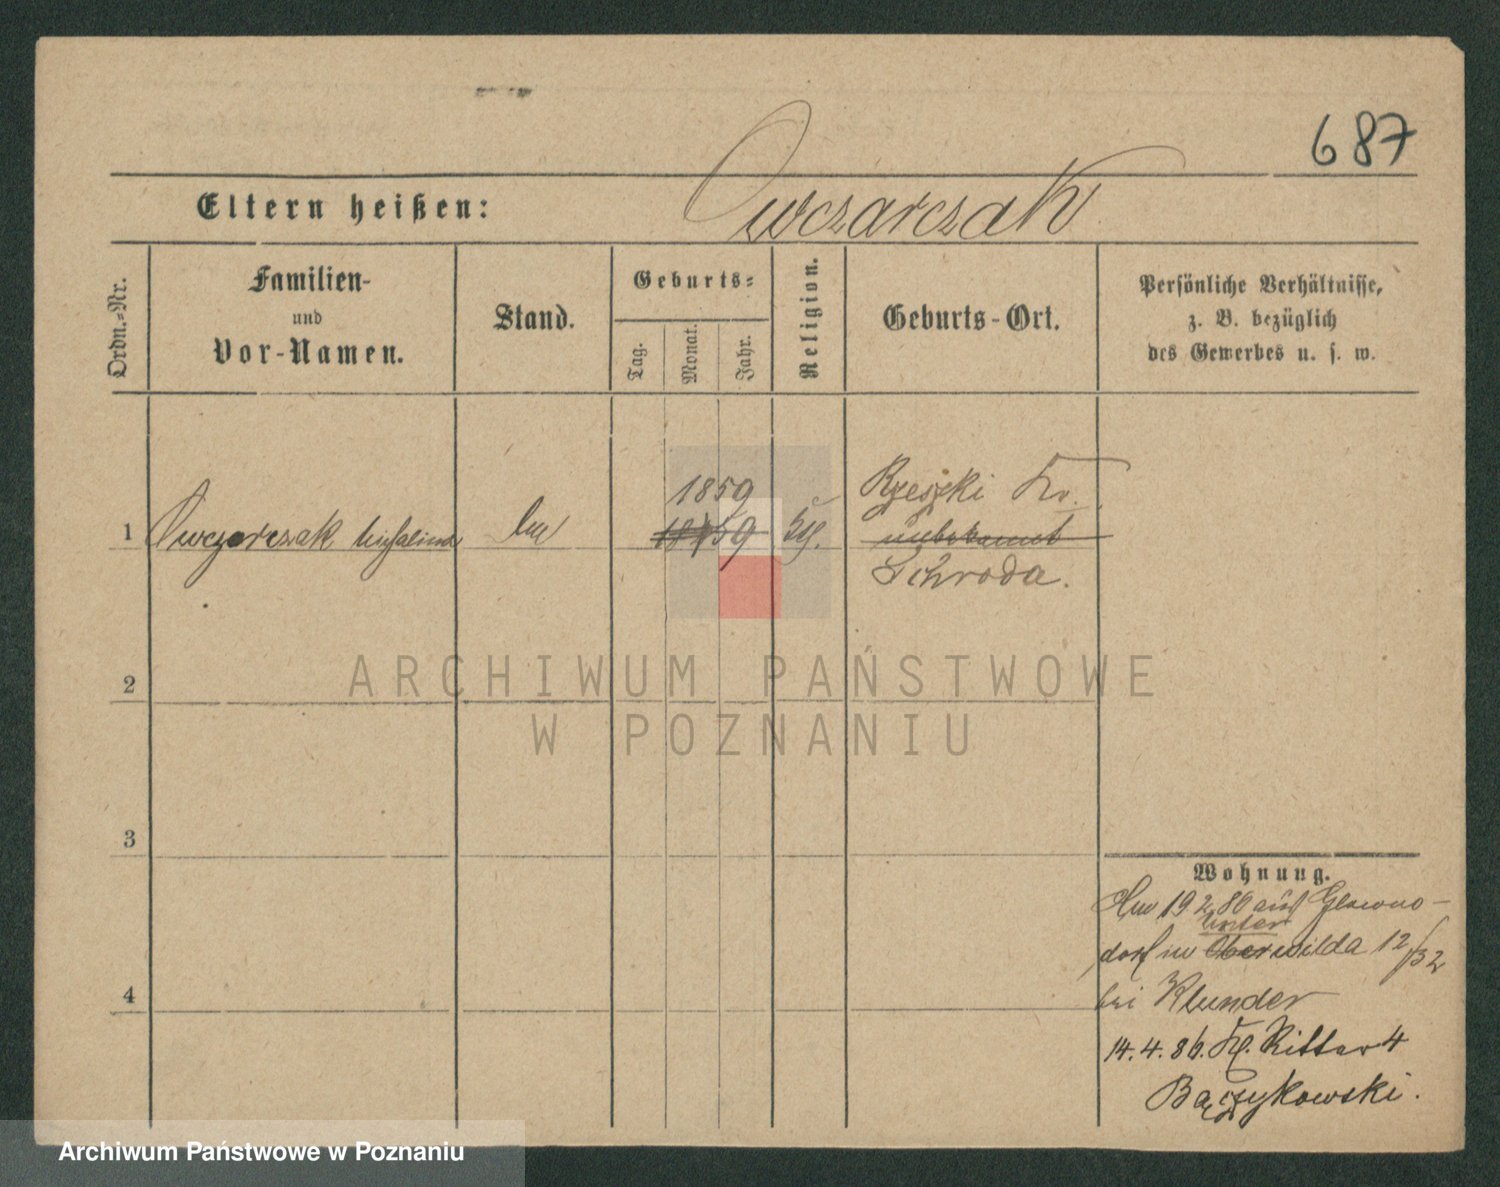 687
Eltern heißen: Owczarczak
Ordn.-Nr.
Familien-
und
Vor-Namen.
Stand.
Geburts-
Tag.
Monat.
Jahr.
Religion.
Geburts-Ort.
Persönliche Verhältnisse,
z. B. bezüglich
des Gewerbes u. s. w.
1859
1 Owczarczak Michalina
Kr.
unbekannt
Schroda.
2
3
4
ARCHIWUM PAŃSTWOWE
W POZNANIU
Wohnung.
Am 19 2 86 aus Glowno-
Unter
dorf in Oberwilda 12/32
bei Klunder
14.4.86. Kl. Ritter 4
Bączykowski.
Archiwum Państwowe w Poznaniu